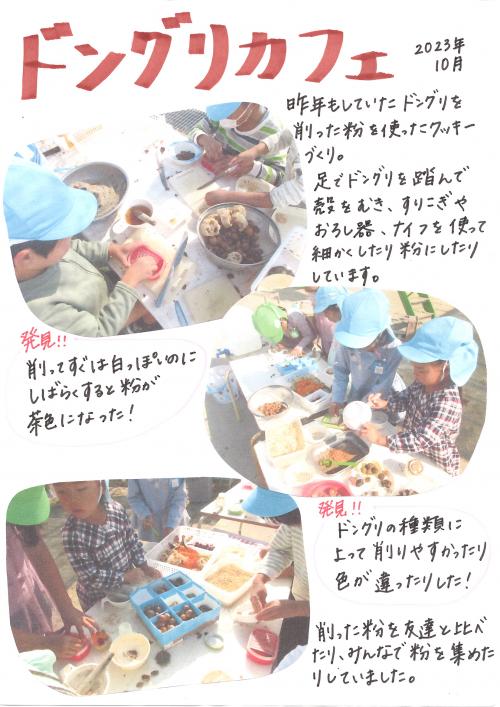 ドングリカフェ
2023年
10月
昨年もしていたドングリを
削った粉を使ったクッキー
づくり。
足でドングリを踏んで
殻をむき、すりこぎや
おろし器、ナイフを使って
細かくしたり粉にしたり
しています。
発見!!
削ってすぐは白っぽいのに
しばらくすると粉が
茶色になった!
発見!!
ドングリの種類に
上って削りやすかったり
色が違ったりした!
削った粉を友達と比べ
たり、みんなで粉を集めた
りしていました。